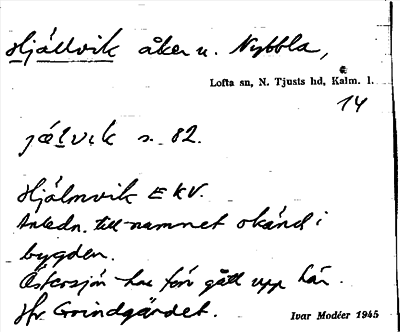 Hjällvik åker u. Nybbla,
Lofta sn, N. Tjusts hd, Kalm. l.
14
jä̀lvik s. 82.
Hjälmvik EKV.
Anledn. till namnet okänd i
bygden.
Östersjön har förr gått upp här.
Hr Grindgärdet.
Ivar Modéer 1945